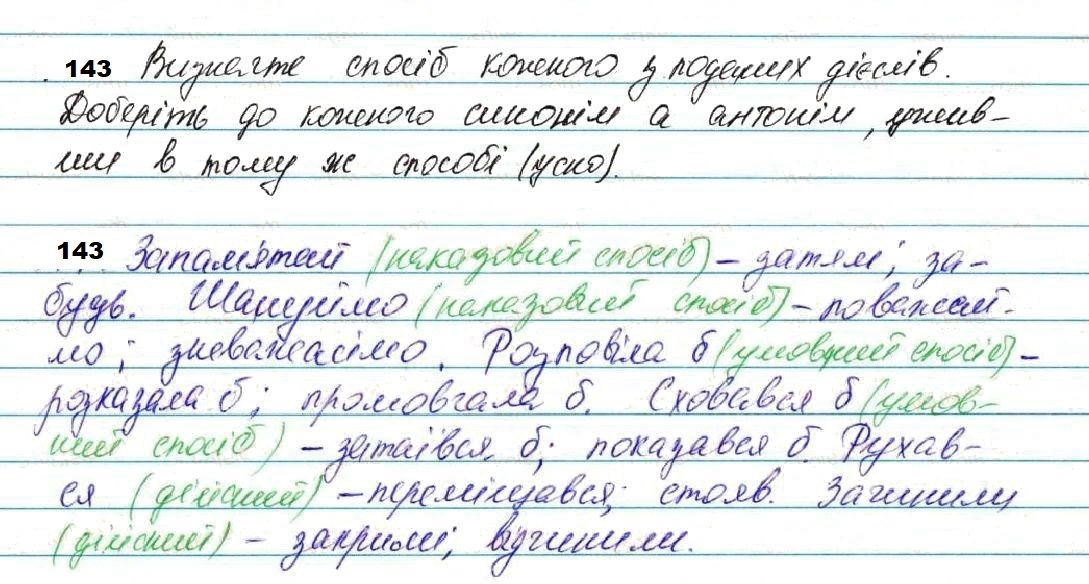 143 Визначте спосіб кожного з поданих дієслів.
Доберіть до кожного синонім а антонім, ужив-
ши в тому ж способі (усно).
143 Запам'ятай (наказовий спосіб) – затям; за-
будь. Шануймо (наказовий спосіб) – поважай-
мо; зневажаймо. Розповіла б (умовний спосіб) –
розказала б; промовчала б. Сховався б (умов-
ний спосіб) – затаївся б; показався б. Рухав-
ся (дійсний) – переміщався; стояв. Зачинили
(дійсний) – закрили; відчинили.